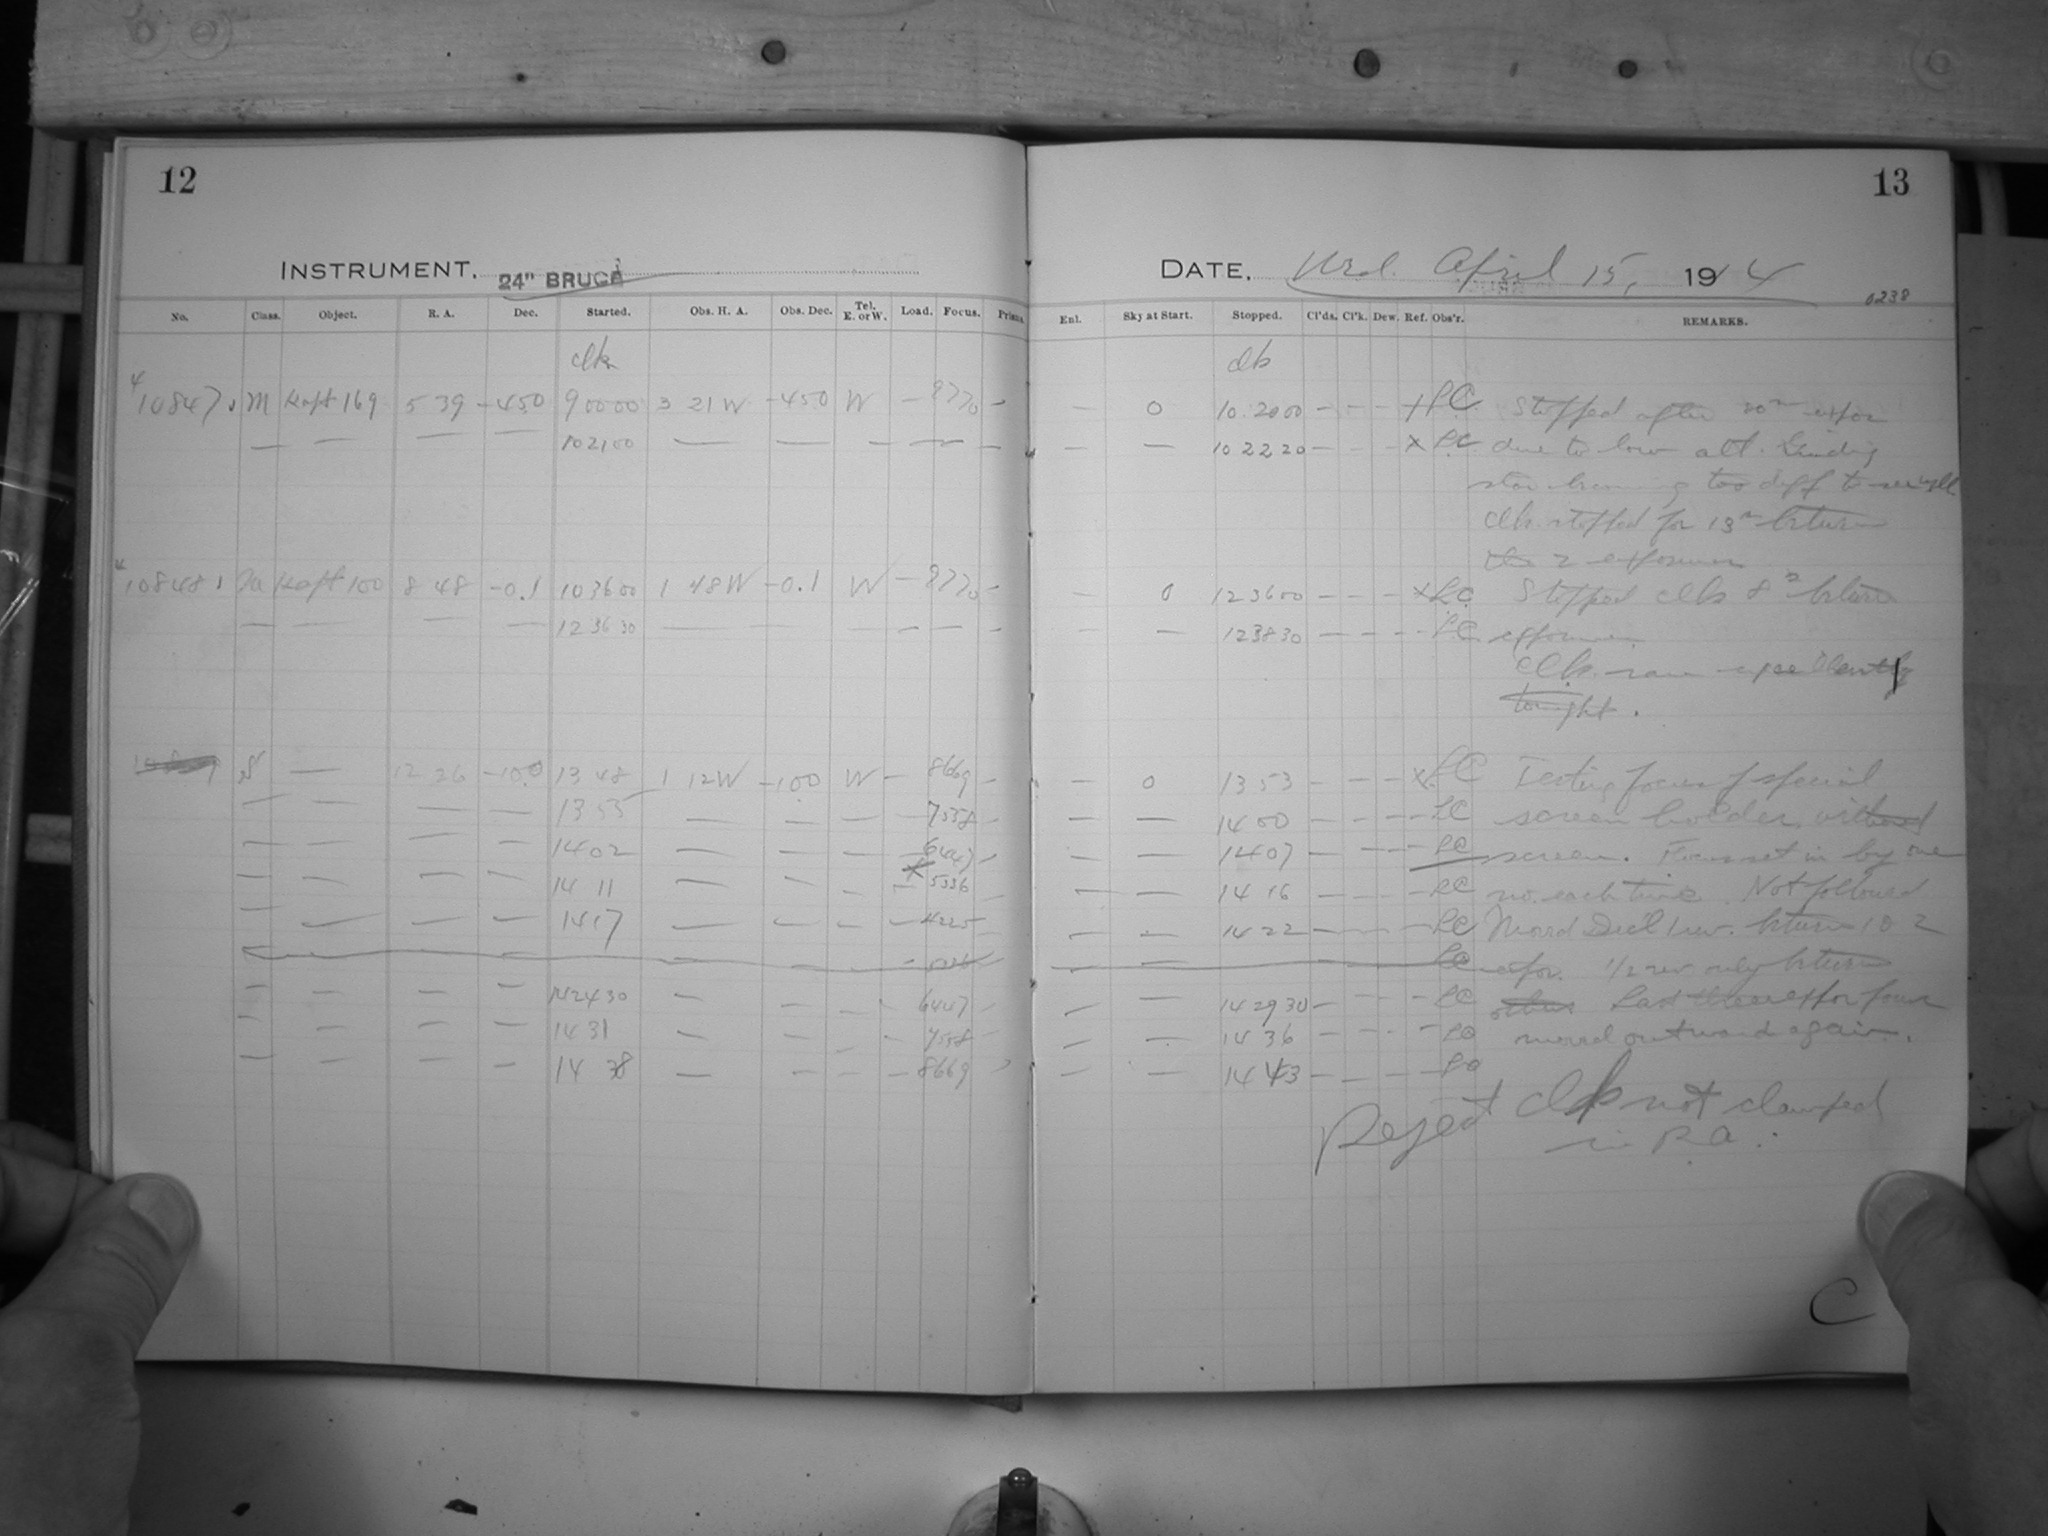 12
INSTRUMENT. 24" BRUCE
No. Class. Object. R. A. Dec. Started. Obs. H. A. Obs. Dec. Tel. E. or W. Load. Focus. Prism.
clk
10847 M Kapt 169 5 39 -450 9 00 00 3 21 W -450 W — 8770 —
— — — — 10 21 00 — — — — — —
10848 M Kapt 100 8 48 -0.1 10 36 00 1 48 W -0.1 W — 8770 —
— — — — 12 36 30 — — — — — —
— 12 26 -10.0 13 48 1 12 W -10.0 W — 8669 —
— — — — 13 55 — — — — 7558 —
— — — — 14 02 — — — — 6447 —
— — — — 14 11 — — — — 5336 —
— — — — 14 17 — — — — 4225 —
— — — 5336
— — — — 14 24 30 — — — — 6447 —
— — — — 14 31 — — — — 7558 —
— — — — 14 38 — — — — 8669
13
DATE. Wed. April 15, 1914
0238
Enl. Sky at Start. Stopped. Cl'ds. Cl'k. Dew. Ref. Obs'r. REMARKS.
clk
— 0 10 20 00 — — — x LC Stopped after expos
— — 10 22 20 — — — x LC due to low alt. Guiding
star becoming too diff to see well
Clk. stopped for 13 s between
the 2 exposures
— 0 12 36 00 — — — x LC Stopped clk 8 s between
— — 12 38 30 — — — LC exposures
Clk. ran excellently
tonight.
— 0 13 53 — — — x LC Testing focus of special
— — 14 00 — — — LC screen holder, without
— — 14 07 — — — LC screen. Focus set in by one
— — 14 16 — — — LC no. each time. Not followed
— — 14 22 — — — LC Moved Decl 1 rev. between 1 & 2
— — LC expos. 1/2 rev only between
— — 14 29 30 — — — LC others Last three expos focus
— — 14 36 — — — LC moved outward again.
— — 14 43 — — — LC
Reject Clk not clamped
in R.A.
C